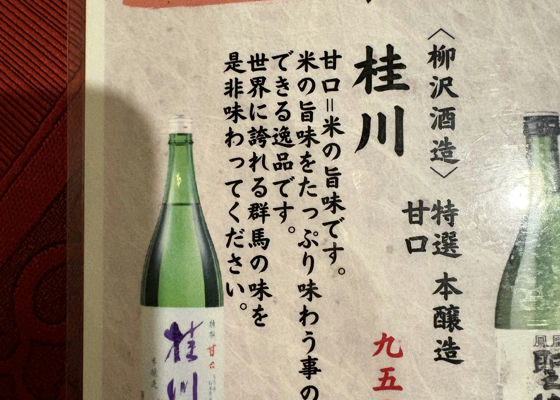 〈柳沢酒造〉特選 本醸造
甘口
桂川
甘口=米の旨味です。
米の旨味をたっぷり味わう事の
できる逸品です。
世界に誇れる群馬の味を
是非味わってください。
九五
特選 甘口
桂川
本醸造
鳳凰
聖徳